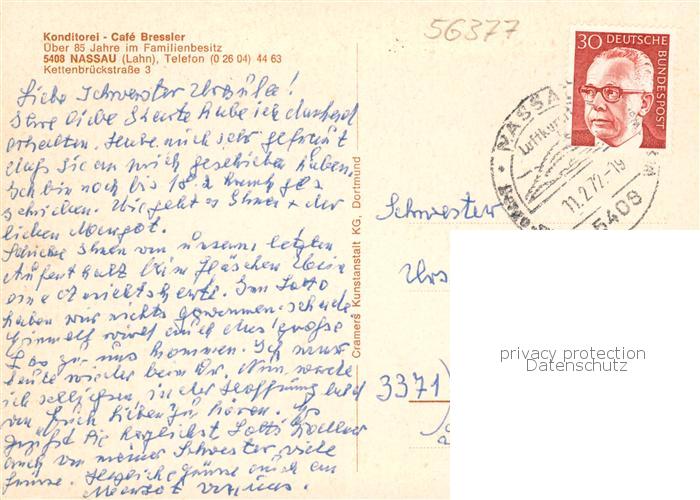 56377
Konditorei - Café Bressler
Über 85 Jahre im Familienbesitz
5408 NASSAU (Lahn), Telefon (0 26 04) 44 63
Kettenbrückstraße 3
30 DEUTSCHE BUNDESPOST
NASSAU
Luftkurort
11.2.72-19
5408
Liebe Schwester Ursula!
Ihre liebe Karte habe ich dankend
erhalten. Habe mich sehr gefreut
daß Sie an mich geschrieben haben.
Ich bin noch bis 18.2 krank ge
schrieben. Wie geht es Ihnen + der
lieben Margot.
Schicke Ihnen von unserm letzten
Aufenthalt beim Gläschen Wein
eine Ansichtskarte. Im Lotto
haben wir nichts gewonnen. schade
Einmal wird auch das große
Los zu uns kommen. Ich war
heute wieder beim Dr. Nun werde
ich schließen, in der Hoffnung bald
von Euch Lieben zu hören. Es
grüßt Sie herzlichst Lotti
auch von meiner Schwester viele
Grüße. Herzliche Grüße auch an
Margot von uns.
Cramers Kunstanstalt KG, Dortmund
Schwester
Urs
3371
privacy protection
Datenschutz